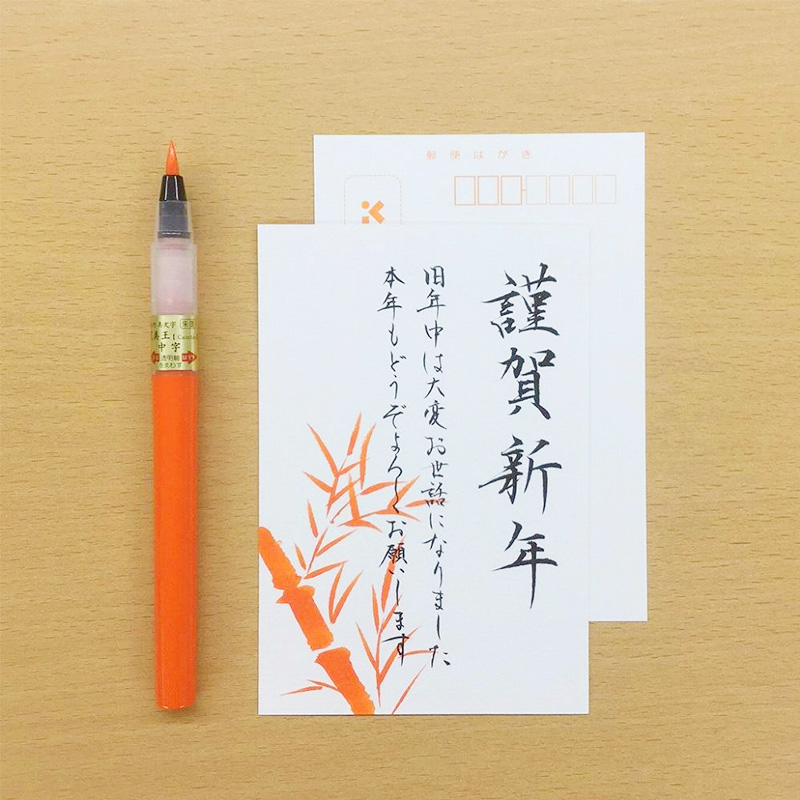 郵便はがき
謹賀新年
旧年中は大変お世話になりました
本年もどうぞよろしくお願いします
中字